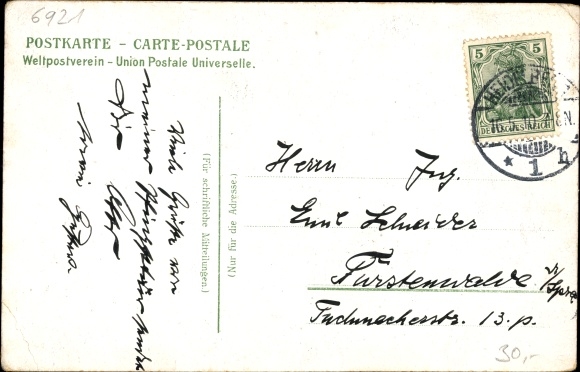 6921
POSTKARTE – CARTE-POSTALE
Weltpostverein – Union Postale Universelle.
Viele Grüße von
meiner
Dir
(Für schriftliche Mitteilungen.)
(Nur für die Adresse.)
5 5
DEUTSCHES REICH
HEIDELBERG
* 1 h
Herrn Ing.
Emil Schneider
Fürstenwalde a/Spree
Tuchmacherstr. 13. p.
30,-